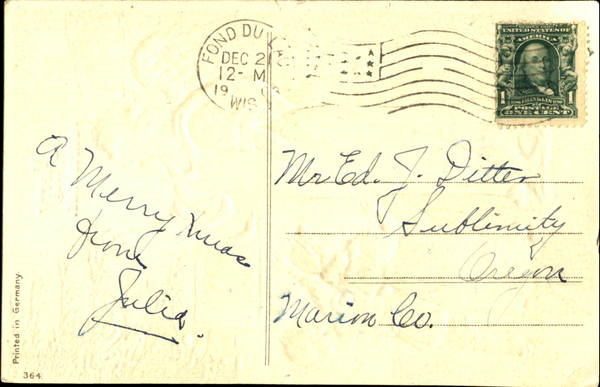 FOND DU
DEC 2
12-M
19
WIS
UNITED STATES OF
AMERICA
1 FRANKLIN 1
POSTAGE
ONE CENT
A Merry Xmas
from
Julia.
Mr Ed. J. Ditter
Sublimity
Oregon
Marion Co.
Printed in Germany.
364